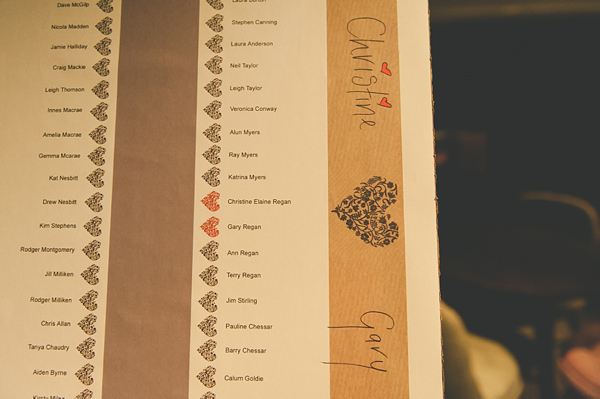 Dave McGilp
Nicola Madden
Jamie Halliday
Craig Mackie
Leigh Thomson
Innes Macrae
Amelia Macrae
Gemma Mcarae
Kat Nesbitt
Drew Nesbitt
Kim Stephens
Rodger Montgomery
Jill Milliken
Rodger Milliken
Chris Allan
Tanya Chaudry
Aiden Byrne
Laura
Stephen Canning
Laura Anderson
Neil Taylor
Leigh Taylor
Veronica Conway
Alun Myers
Ray Myers
Katrina Myers
Christine Elaine Regan
Gary Regan
Ann Regan
Terry Regan
Jim Stirling
Pauline Chessar
Barry Chessar
Calum Goldie
Christine
Gary